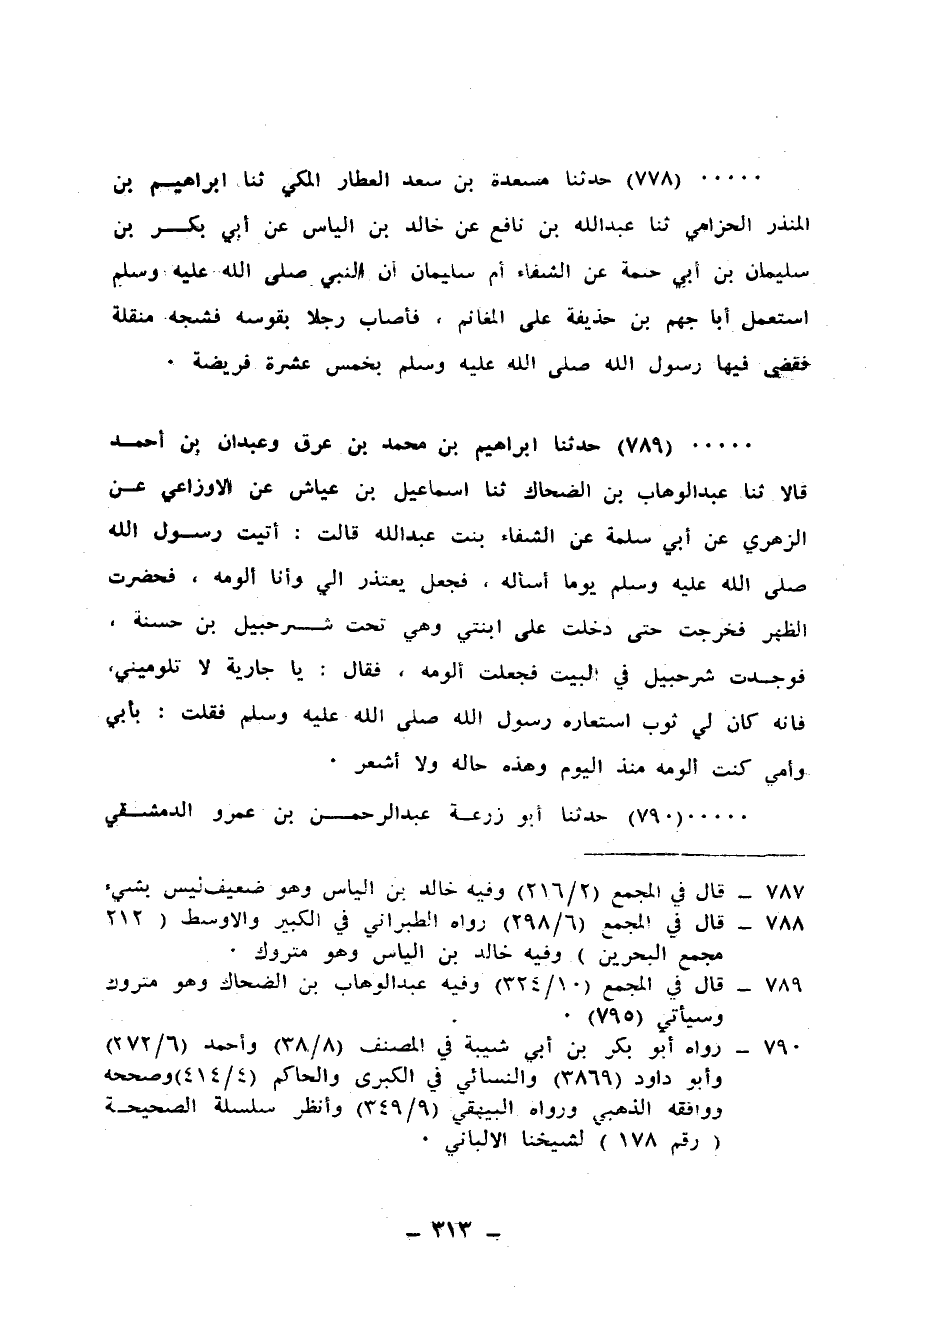 ٠٠٠٠٠ (٧٧٨) حدثنا مسعدة بن سعد العطار المكي ثنا ابراهيم بن
المنذر الحزامي ثنا عبدالله بن نافع عن خالد بن الياس عن أبي بكر بن
سليمان بن أبي حتمة عن الشفاء أم سليمان أن النبي صلى الله عليه وسلم
استعمل أبا جهم بن حذيفة على المغانم ، فأصاب رجلا بقوسه فشجه منقلة
فقضى فيها رسول الله صلى الله عليه وسلم بخمس عشرة فريضة ٠
٠٠٠٠٠ (٧٨٩) حدثنا ابراهيم بن محمد بن عرق وعبدان بن أحمد
قالا ثنا عبدالوهاب بن الضحاك ثنا اسماعيل بن عياش عن الاوزاعي عن
الزهري عن أبي سلمة عن الشفاء بنت عبدالله قالت : أتيت رسول الله
صلى الله عليه وسلم يوما أسأله ، فجعل يعتذر الي وأنا ألومه ، فحضرت
الظهر فخرجت حتى دخلت على ابنتي وهي تحت شرحبيل بن حسنة ،
فوجدت شرحبيل في البيت فجعلت ألومه ، فقال : يا جارية لا تلوميني،
فانه كان لي ثوب استعاره رسول الله صلى الله عليه وسلم فقلت : بأبي
وأمي كنت ألومه منذ اليوم وهذه حاله ولا أشعر ٠
٠٠٠٠٠(٧٩٠) حدثنا أبو زرعة عبدالرحمن بن عمرو الدمشقي
٧٨٧ ـ قال في المجمع (٢١٦/٢) وفيه خالد بن الياس وهو ضعيف ليس بشيء
٧٨٨ ـ قال في المجمع (٢٩٨/٦) رواه الطبراني في الكبير والاوسط ( ٢١٢
مجمع البحرين ) وفيه خالد بن الياس وهو متروك ٠
٧٨٩ ـ قال في المجمع (٣٢٤/١٠) وفيه عبدالوهاب بن الضحاك وهو متروك
وسيأتي (٧٩٥) ٠
٧٩٠ ـ رواه أبو بكر بن أبي شيبة في المصنف (٣٨/٨) وأحمد (٢٧٢/٦)
وأبو داود (٣٨٦٩) والنسائي في الكبرى والحاكم (٤١٤/٤)وصححه
ووافقه الذهبي ورواه البيهقي (٣٤٩/٩) وأنظر سلسلة الصحيحة
( رقم ١٧٨ ) لشيخنا الالباني ٠
ـ ٣١٣ ـ